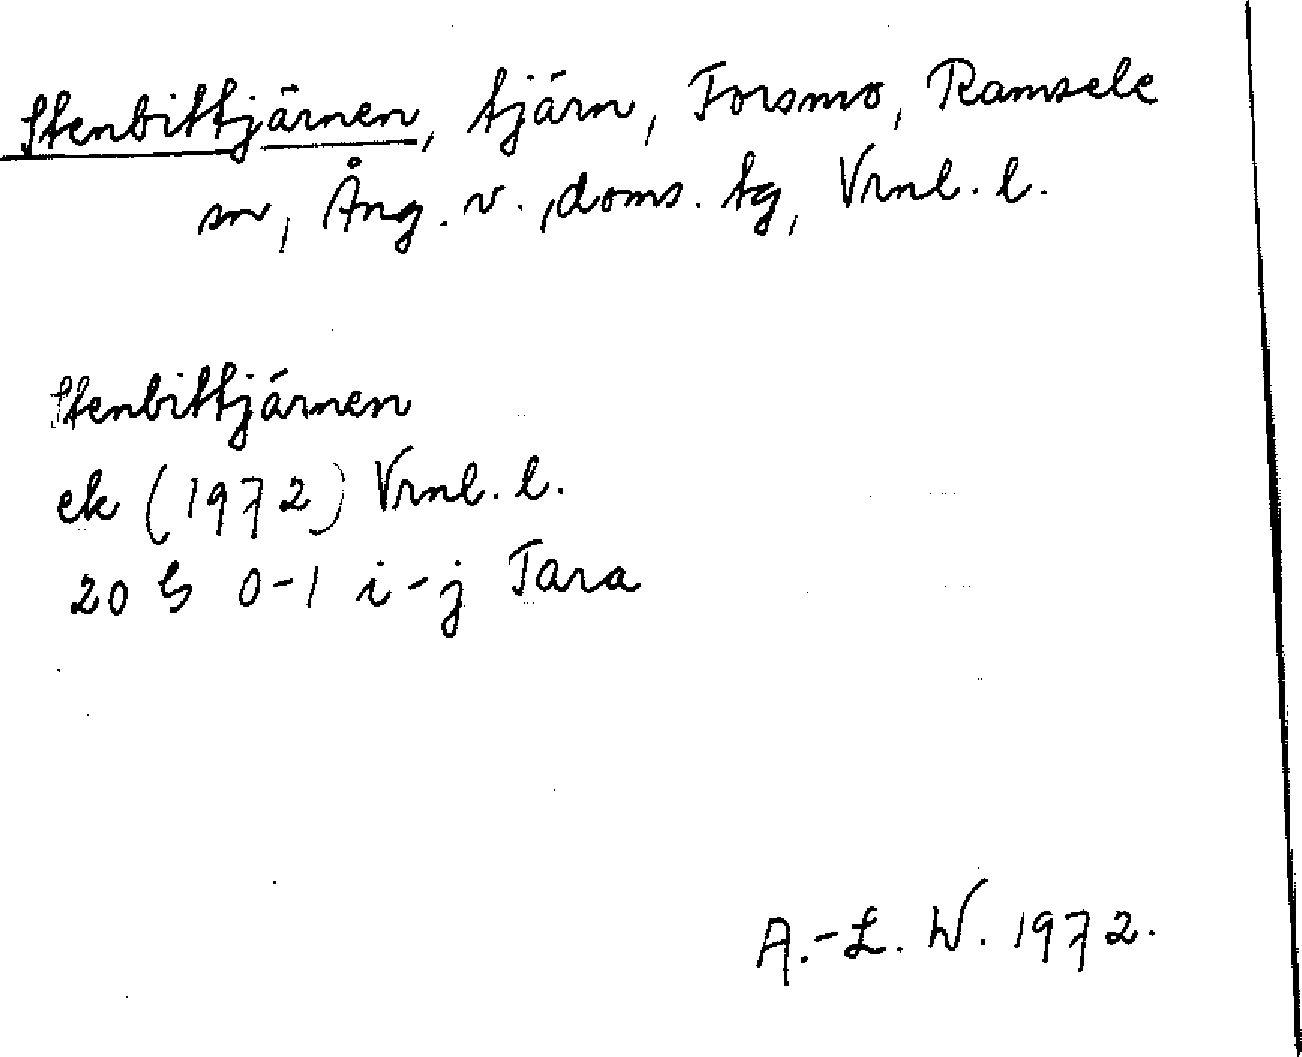 Stenbittjärnen, tjärn, Forsmo, Ramsele
sn, Ång. v., doms. tg, Vrnl. l.
Stenbittjärnen
ek (1972) Vrnl. l.
20 G 0-1 i-j Tara
A.-L. W. 1972.